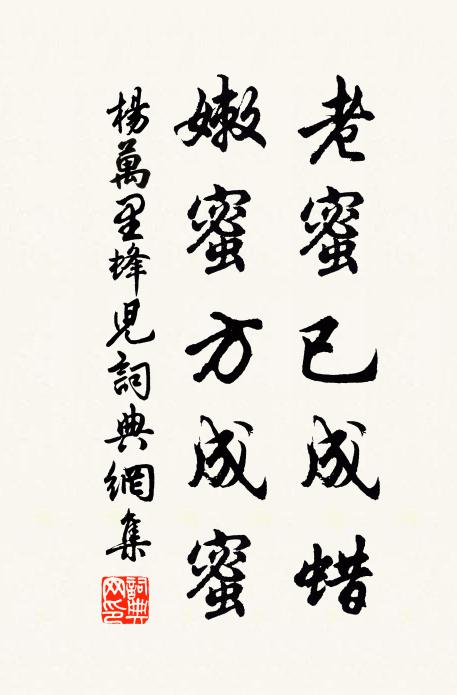 老蜜已成蜡
嫩蜜方成蜜
楊萬里蜂児詞典網集
詞典网印